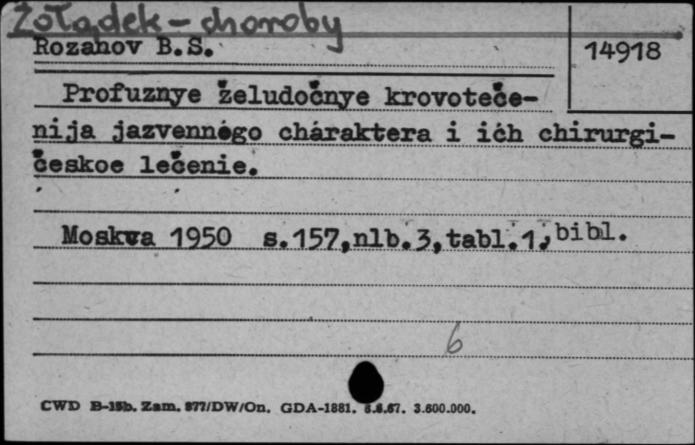 Żołądek - choroby
Rozanov B.S.
14918
Profuznye želudočnye krovoteče-
nija jazvennégo cháraktera i ičh chirurgi-
českoe lečenie.
Moskwa 1950 s.157,nlb.3,tabl.1,bibl.
6
CWD B-15b. Zam. 877/DW/On. GDA-1881. 6.6.67. 3.600.000.